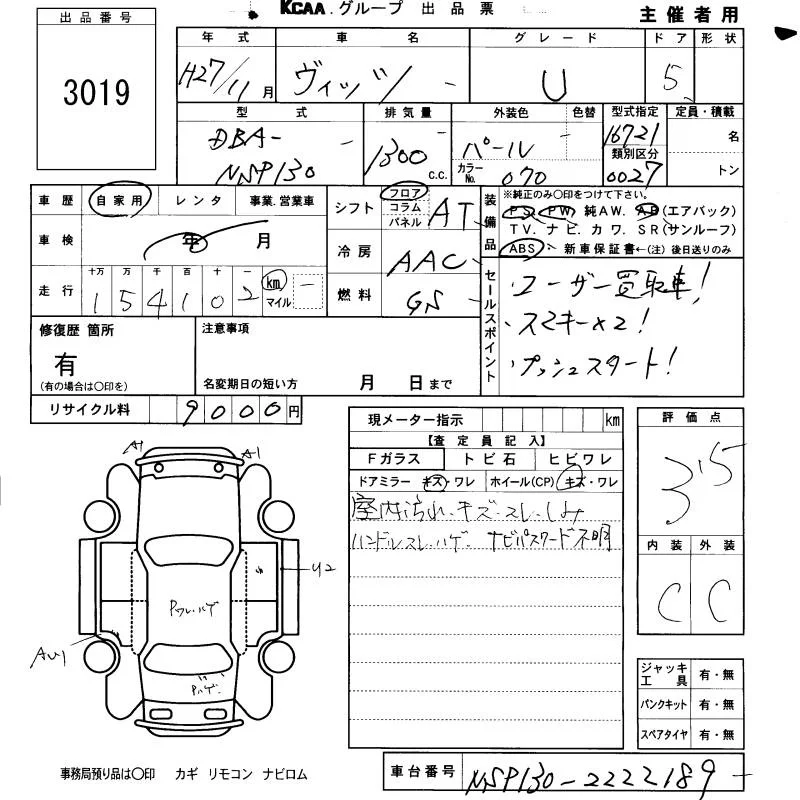 KCAA.グループ 出品票
主催者用
出品番号
3019
年式 車名 グレード ドア 形状
H27/11月 ヴィッツ - U 5
型式 排気量 外装色 色替 型式指定 定員・積載
DBA-
NSP130
1300 c.c. パール - 16721 名
カラーNo. 070 類別区分 0027 トン
車歴 自家用 レンタ 事業.営業車
車検 年 月
走行 十万 万 千 百 十 一
154102 km マイル -
シフト フロア コラム パネル AT
冷房 AAC
燃料 GS
装備品
※純正のみ〇印をつけて下さい。
PS. PW. 純AW. AB(エアバック)
TV. ナビ. カワ. SR(サンルーフ)
ABS 新車保証書←(注)後日送りのみ
セールスポイント
・ユーザー買取車!
・スマキー×2!
・プッシュスタート!
修復歴 箇所
有
(有の場合は〇印を)
注意事項
名変期日の短い方 月 日まで
リサイクル料 9000円
現メーター指示 km
【査定員記入】
Fガラス トビ石 ヒビワレ
ドアミラー キズ・ワレ ホイール(CP) キズ・ワレ
室内汚れ.キズ.スレ.しみ
ハンドルスレ.ハゲ. ナビパスワード不明
評価点
3.5
内装 外装
C C
A1 A1
U2
Pワレ.ハゲ
AU1
Pハゲ.
ジャッキ 工具 有・無
パンクキット 有・無
スペアタイヤ 有・無
事務局預り品は〇印 カギ リモコン ナビロム
車台番号 NSP130-2222189-